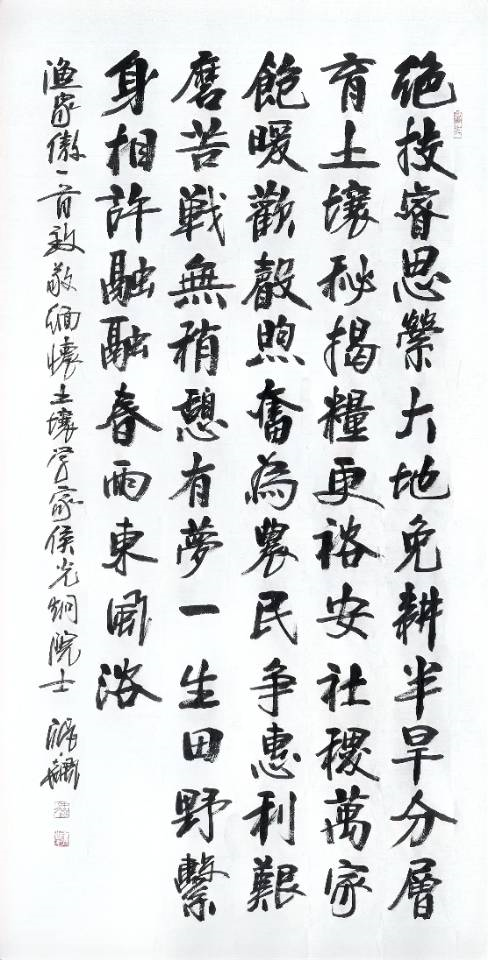 絶技睿思縈大地免耕半旱分層
育土壤秘揭糧更裕安社稷萬家
飽暖歡聲煦奮為農民争惠利艱
磨苦戦無稍憩有夢一生田野繫
身相許融融春雨東風浴
渔家傲一首致敬缅懷土壤学家侯光炯院士